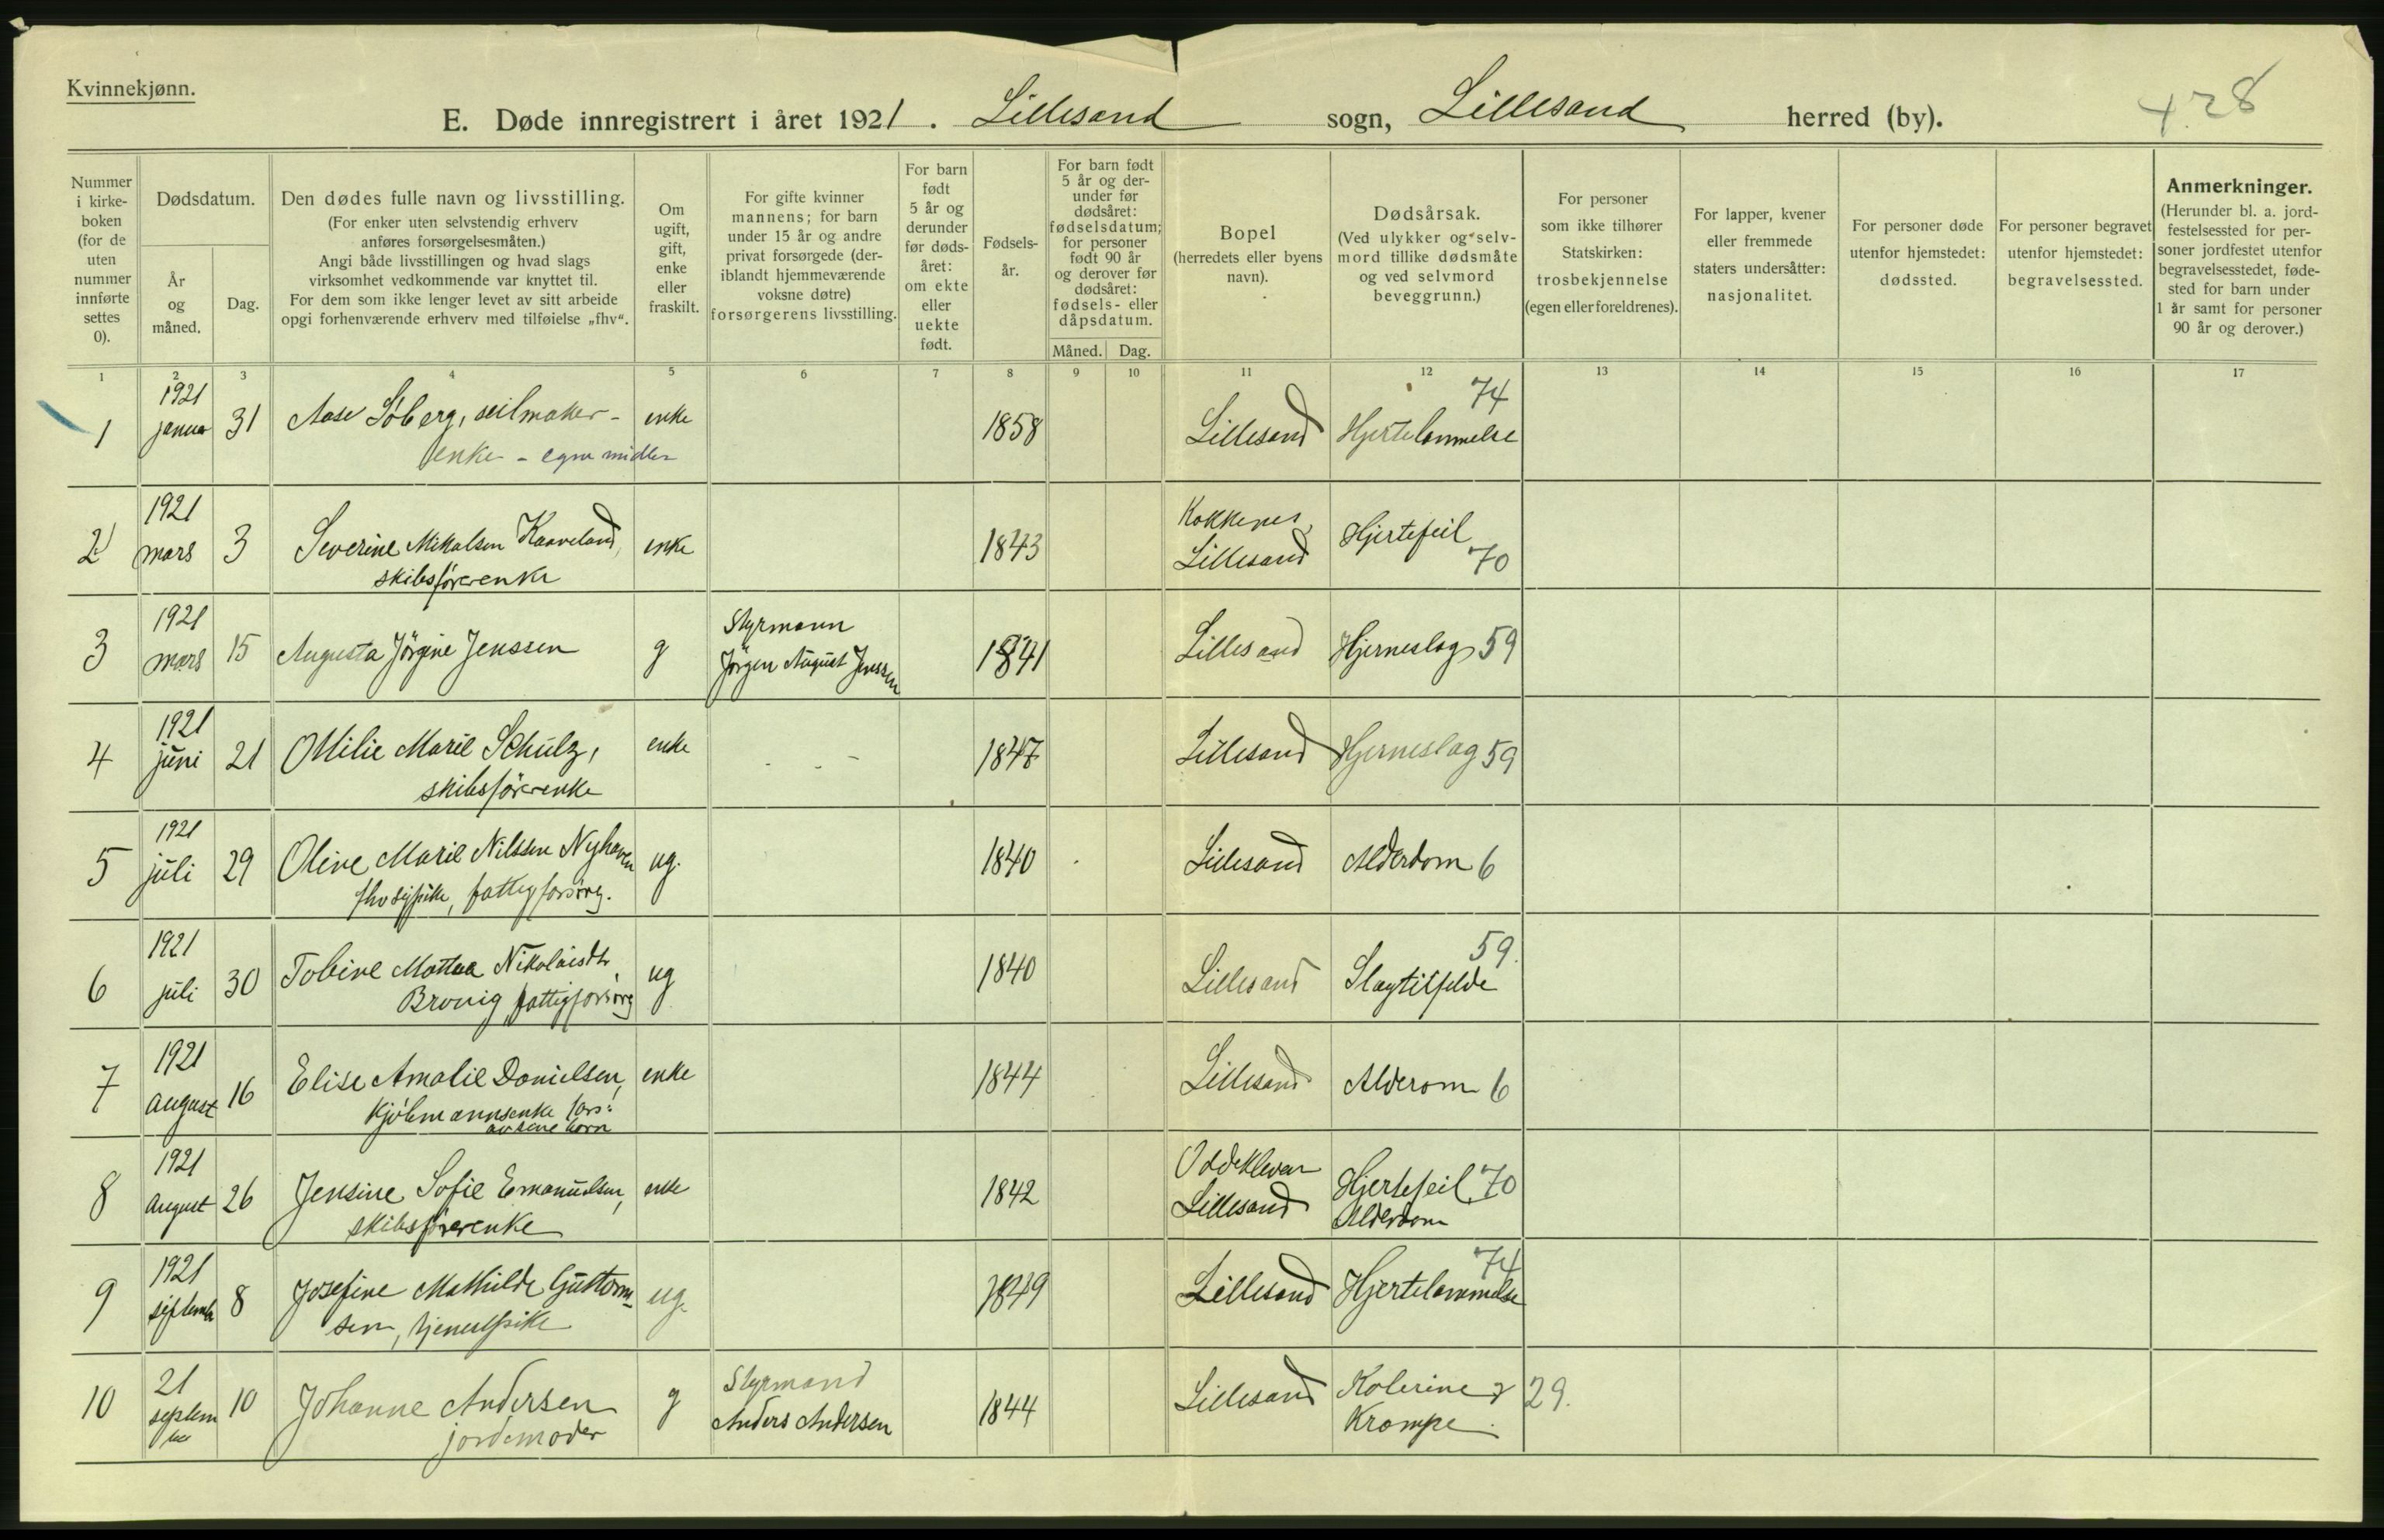 Kvinnekjønn.
E. Døde innregistrert i året 1921. Lillesand sogn, Lillesand herred (by).
428
Nummer i kirke- boken (for de uten nummer innførte settes 0).
Dødsdatum.
År og måned.
Dag.
Den dødes fulle navn og livsstilling.
(For enker uten selvstendig erhverv
anføres forsørgelsesmåten.)
Angi både livsstillingen og hvad slags
virksomhet vedkommende var knyttet til.
For dem som ikke lenger levet av sitt arbeide
opgi forhenværende erhverv med tilføielse „fhv“.
Om ugift, gift, enke eller fraskilt.
For gifte kvinner
mannens; for barn
under 15 år og andre
privat forsørgede (der-
iblandt hjemmeværende
voksne døtre)
forsørgerens livsstilling.
For barn født 5 år og derunder før døds- året: om ekte eller uekte født.
Fødsels- år.
For barn født 5 år og der- under før dødsåret: fødselsdatum; for personer født 90 år og derover før dødsåret: fødsels- eller dåpsdatum.
Måned. Dag.
Bopel
(herredets eller byens
navn).
Dødsårsak.
(Ved ulykker og selv-
mord tillike dødsmåte
og ved selvmord
beveggrunn.)
For personer
som ikke tilhører
Statskirken:
trosbekjennelse
(egen eller foreldrenes).
For lapper, kvener
eller fremmede
staters undersåtter:
nasjonalitet.
For personer døde
utenfor hjemstedet:
dødssted.
For personer begravet
utenfor hjemstedet:
begravelsessted.
Anmerkninger.
(Herunder bl. a. jord-
festelsessted for per-
soner jordfestet utenfor
begravelsesstedet, føde-
sted for barn under
1 år samt for personer
90 år og derover.)
1 2 3 4 5 6 7 8 9 10 11 12 13 14 15 16 17
1 1921 januar 31 Aase Söberg, seilmaker- enke 1858 Lillesand Hjertelammelse 74
enke - egne midler
2 1921 mars 3 Severine Mikalsen Kaaveland, enke 1843 Kokkenes, Lillesand Hjertefeil 70
skibsförerenke
3 1921 mars 15 Augusta Jörgine Jenssen g Styrmann Jörgen August Jenssen 1841 Lillesand Hjerneslag 59
4 1921 juni 21 Ottilie Marie Schulz, enke - - - 1847 Lillesand Hjerneslag 59
skibsförerenke
5 1921 juli 29 Oline Marie Nilssen Nyhaven ug. 1840 Lillesand Alderdom 6
fhv sypike, fattigforsörg.
6 1921 juli 30 Tobine Mattea Nikolaisdtr ug 1840 Lillesand Slagtilfelde 59.
Brovig, fattigforsörg
7 1921 august 16 Elise Amalie Danielsen, enke 1844 Lillesand Alderom 6
kjöbmannsenke fors:
av sine barn
8 1921 august 26 Jensine Sofie Emanuelsen, enke 1842 Oddekleven Lillesand Hjertefeil, 70 Alderdom
skibsförerenke
9 1921 september 8 Josefine Mathilde Guttorm- ug. 1849 Lillesand Hjertelammelse 74
sen, tjenestpike
10 21 september 10 Johanne Andersen g Styrmand Anders Andersen 1844 Lillesand Kolerine & Krampe. 29.
jordemoder